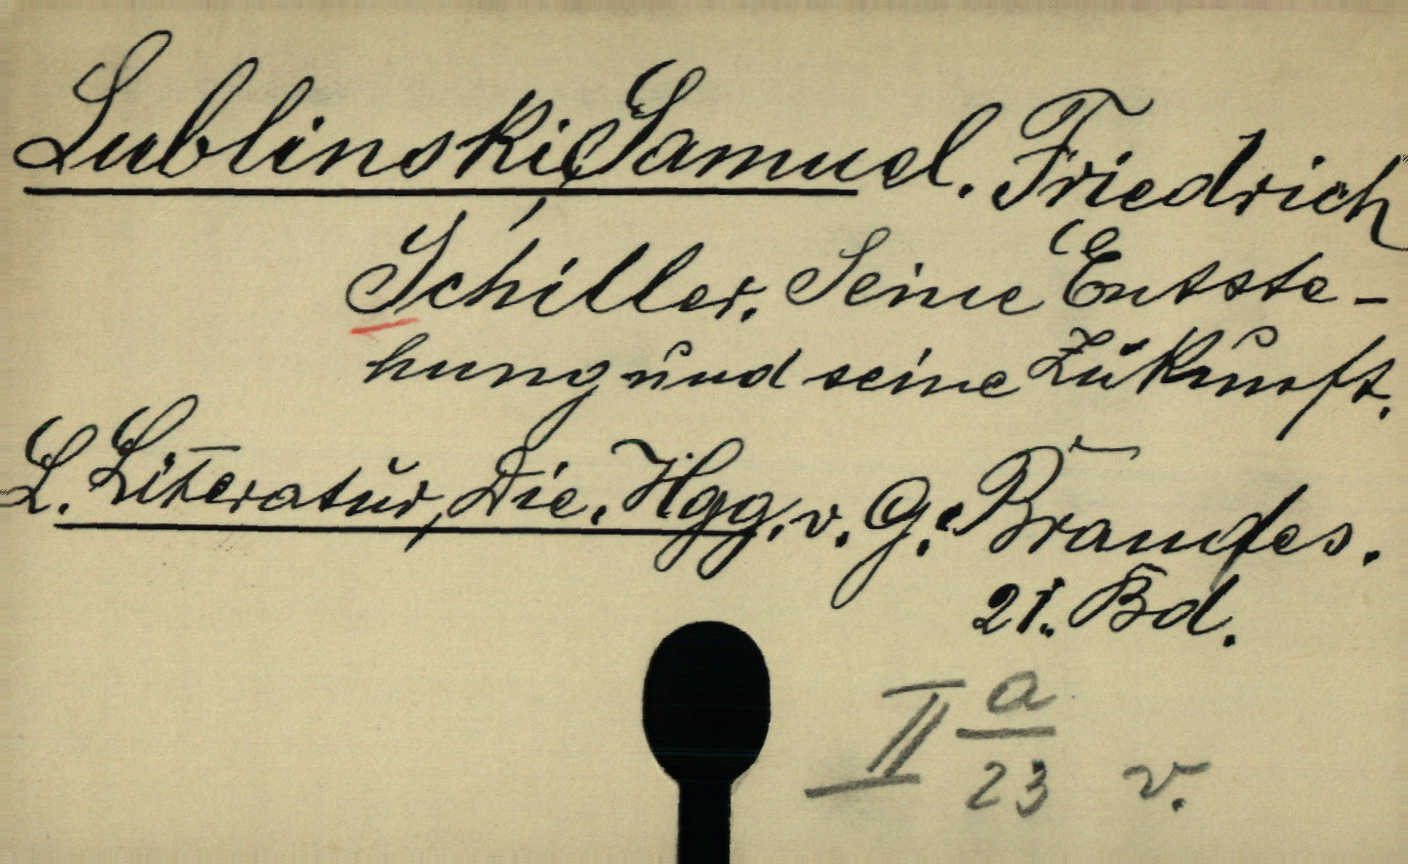 Lublinski, Samuel. Friedrich
Schiller. Seine Entste-
hung und seine Zukunft.
S. Literatur, Die. Hgg. v. G. Brandes.
21. Bd.
II a/23 v.